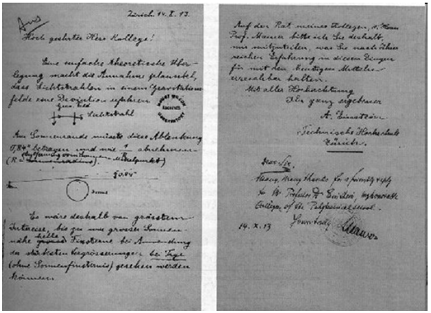 Zürich. 14. X. 13.
Hoch geehrter Herr Kollege!
Eine einfache theoretische Über-
legung macht die Annahme plausibel,
dass Lichtstrahlen in einem Gravitations-
felde eine Deviation erfahren.
Lichtstrahl
Am Sonnenrande müsste diese Ablenkung
0,84" betragen und wie 1/R abnehmen
0.84"
Sonne
Es wäre deshalb von grösstem
Interesse, bis zu wie grosser Sonnen-
nähe grosse Fixsterne bei Anwendung
der stärksten Vergrösserungen bei Tage
(ohne Sonnenfinsternis) gesehen werden
können.
Auf den Rat meines Kollegen, d. Herrn
Prof. Maurer bitte ich Sie deshalb,
mir mitzuteilen, was Sie nach Ihrer
reichen Erfahrung in diesen Dingen
für mit den heutigen Mitteln
erreichbar halten.
Mit aller Hochachtung
Ihr ganz ergebener
A. Einstein
Technische Hochschule
Zürich.
Dear Sir,
many many thanks for a friendly reply
to Mr. Professor Dr. Einstein, my honorable
College of the Polytechnical school.
14. X. 13
Yours truly
Maurer